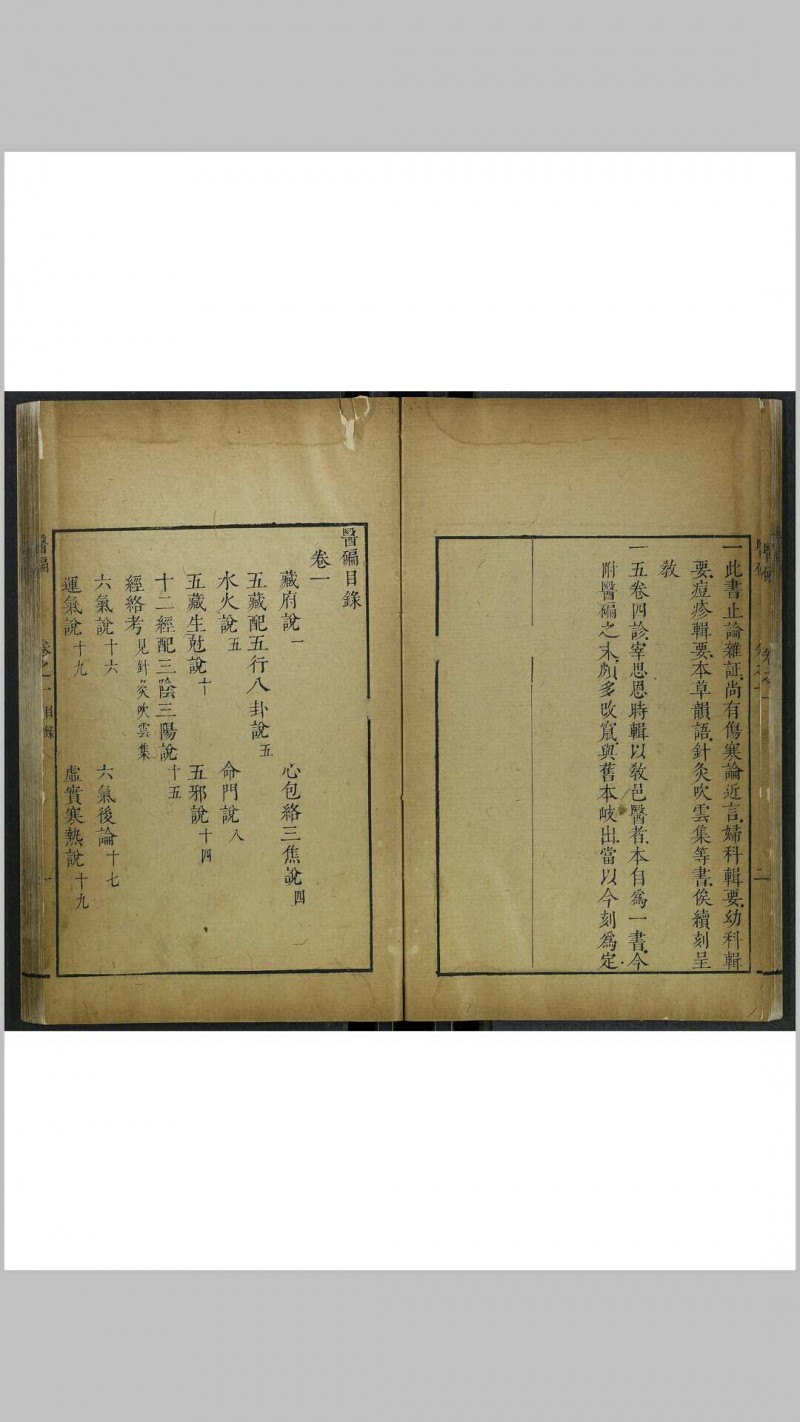 一此書止論雜証尚有傷寒論近言婦科輯要幼科輯
要痘疹輯要本草韻語針灸吹雲集等書俟續刻呈
教
一五卷四診宰思恩時輯以教邑醫者本自爲一書今
附醫碥之末頗多改竄與舊本岐出當以今刻爲定
二
醫碥目錄
卷一
藏府說一
心包絡三焦說四
五藏配五行八卦說五
水火說五
命門說八
五藏生尅說十
五邪說十四
十二經配三陰三陽說十五
經絡考見針灸吹雲集
六氣說十六
六氣後論十七
運氣說十九
虛實寒熱說十九
醫碥
卷之一
目錄
一